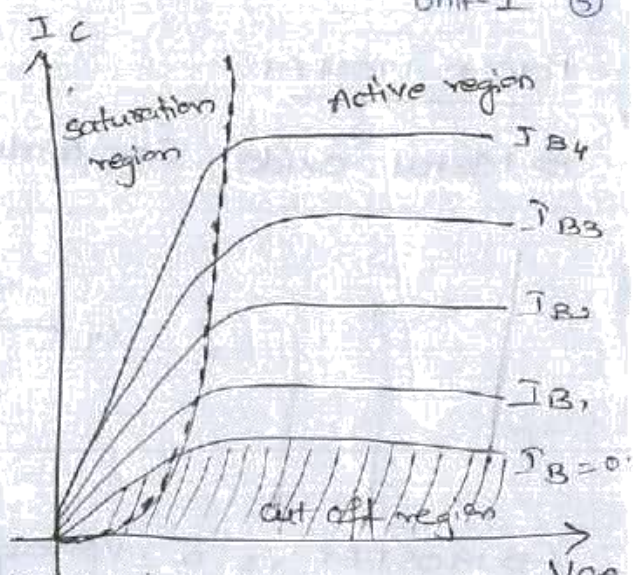 Unit-I ③
I C
Saturation
region
Active region
I B4
I B3
I B2
I B1
I B = 0
cut off region
VCE